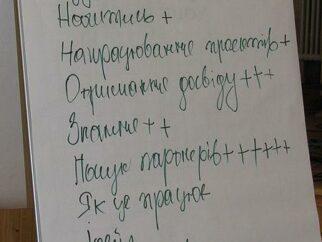 Напрацювання проєктів +
Отримання досвіду +++
Знання ++
Пошук партнерів ++++++
Як це працює